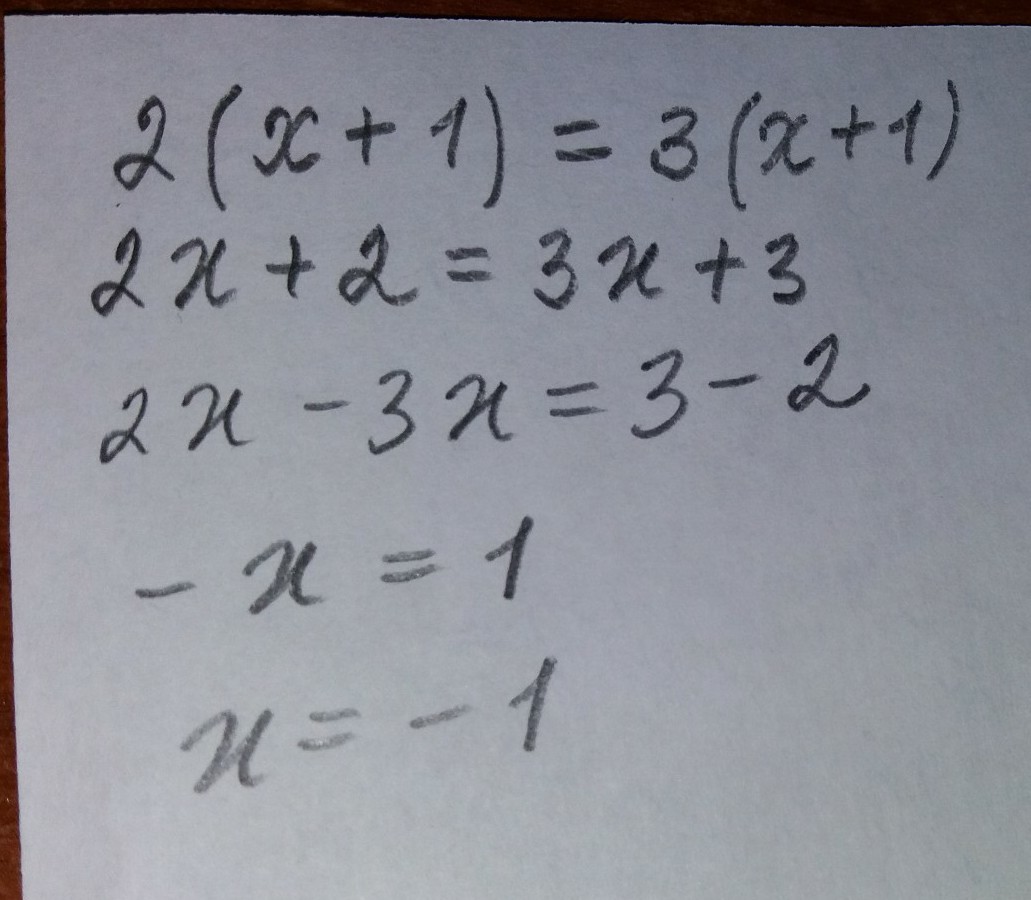 2(x+1) = 3(x+1)
2x+2 = 3x+3
2x-3x=3-2
-x = 1
x=-1